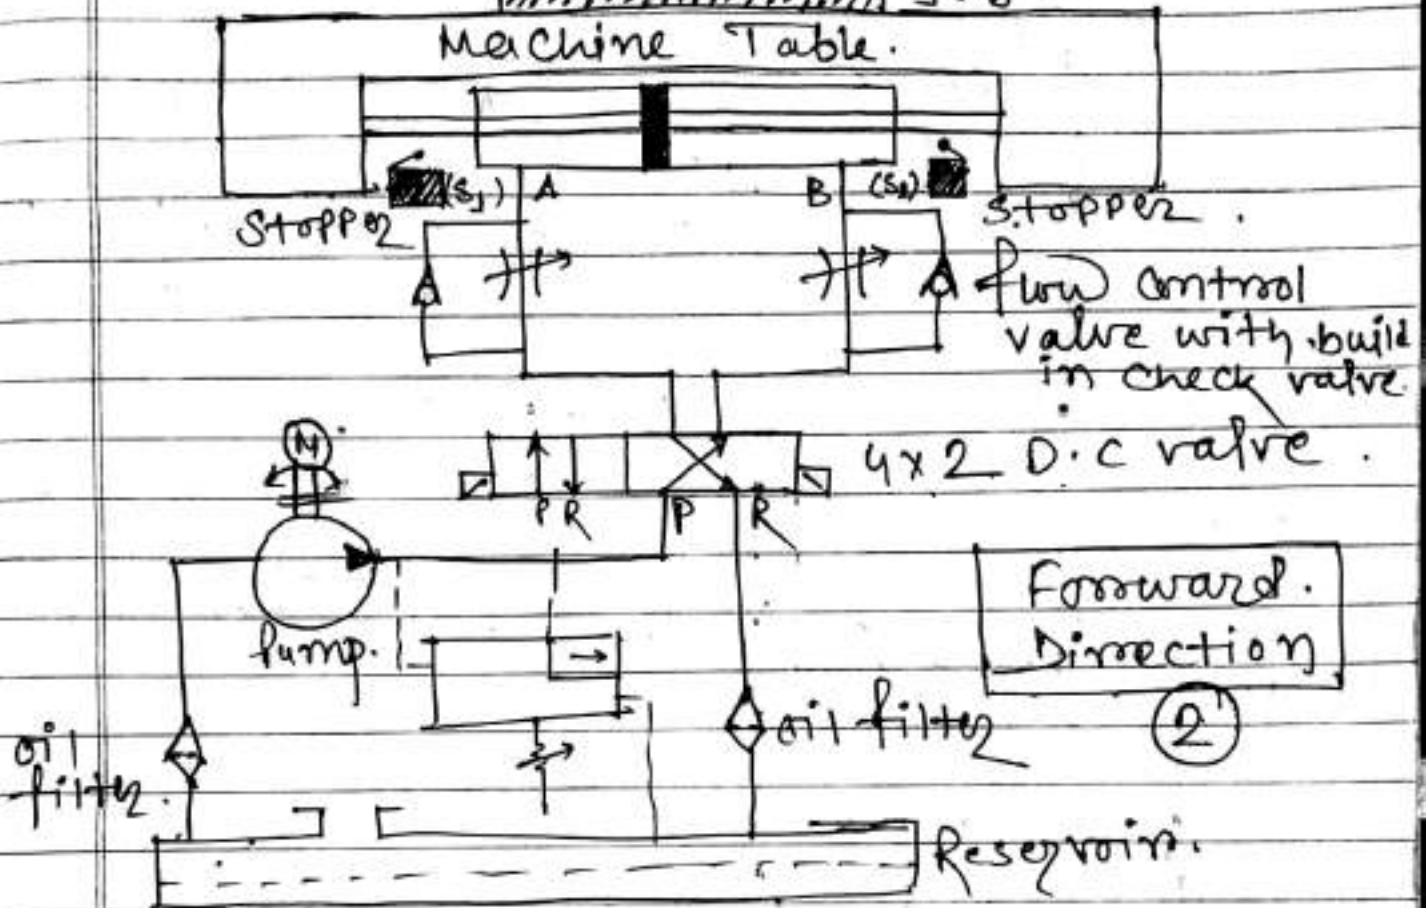 Machine Table.
(S1) A B (S2)
Stopper Stopper.
flow control
valve with build
in check valve.
M
4x2 D.C valve.
P R P R
Forward.
Dirrection
Pump.
2
oil filter
oil
filter.
Reservoir.